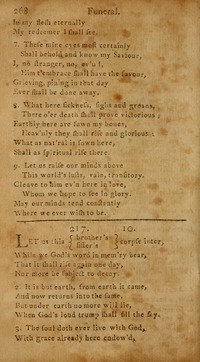 268 Funeral.
In my flesh eternally
My redeemer I shall see.
7. These mine eyes most certainly
Shall behold and know my Saviour,
I, no stranger, no, ev'n I,
Him t'embrace shall have the favour,
Grieving, plaing in that day
Ever shall be done away.
8. What here sickness, sighs and groans,
There o'er death shall prove victorious;
Earthly here are sown my bones,
Heav'nly they shall rise and glorious:
What as nat'ral is sown here,
Shall as spiritual rise there.
9. Let us raise our minds above
This world's lusts, vain, transitory.
Cleave to him ev'n here in love,
Whom we hope to see in glory.
May our minds tend constantly
Where we ever wish to be.
217. 10.
LET us this {brother's
sister's} corpse inter,
While we God's word in mem'ry bear,
That it shall rise again one day,
Nor more be subject to decay.
2. It is but earth, from earth it came,
And now returns into the same.
But under earth no more will lie,
When God's loud trump shall fill the sky.
3. The soul doth ever live with God,
With grace already here endow'd,